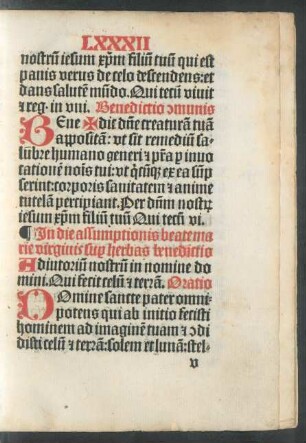 LXXXII
nostrũ iesum xp̃m filiũ tuũ qui est
panis verus de celo descendens: et
dans salutẽ mũdo. Qui tecũ viuit
⁊ reg. in vni. Benedictio ↄmunis
BEne ✠ dic dñe creaturã tuã
appositã: vt sit remediũ sa-
lubre humano generi ⁊ p̃ta p inuo
cationẽ noĩs tui: vt q̇cũq̃ ex ea sũp
serint: corporis sanitatem ⁊ anime
tutelã percipiant. Per dñm nostrꝝ
iesum xp̃m filiũ tuũ Qui tecũ vi.
¶ In die assumptionis beate ma
rie virginis sup herbas benedictio
Adiutoriũ nostrũ in nomine do
mini. Qui fecit celũ ⁊ terrã. Oratio
DOmine sancte pater omni-
potens qui ab initio fecisti
hominem ad imaginẽ tuam ⁊ ↄdi
disti celũ ⁊ terrã: solem et lunã: stel-
v